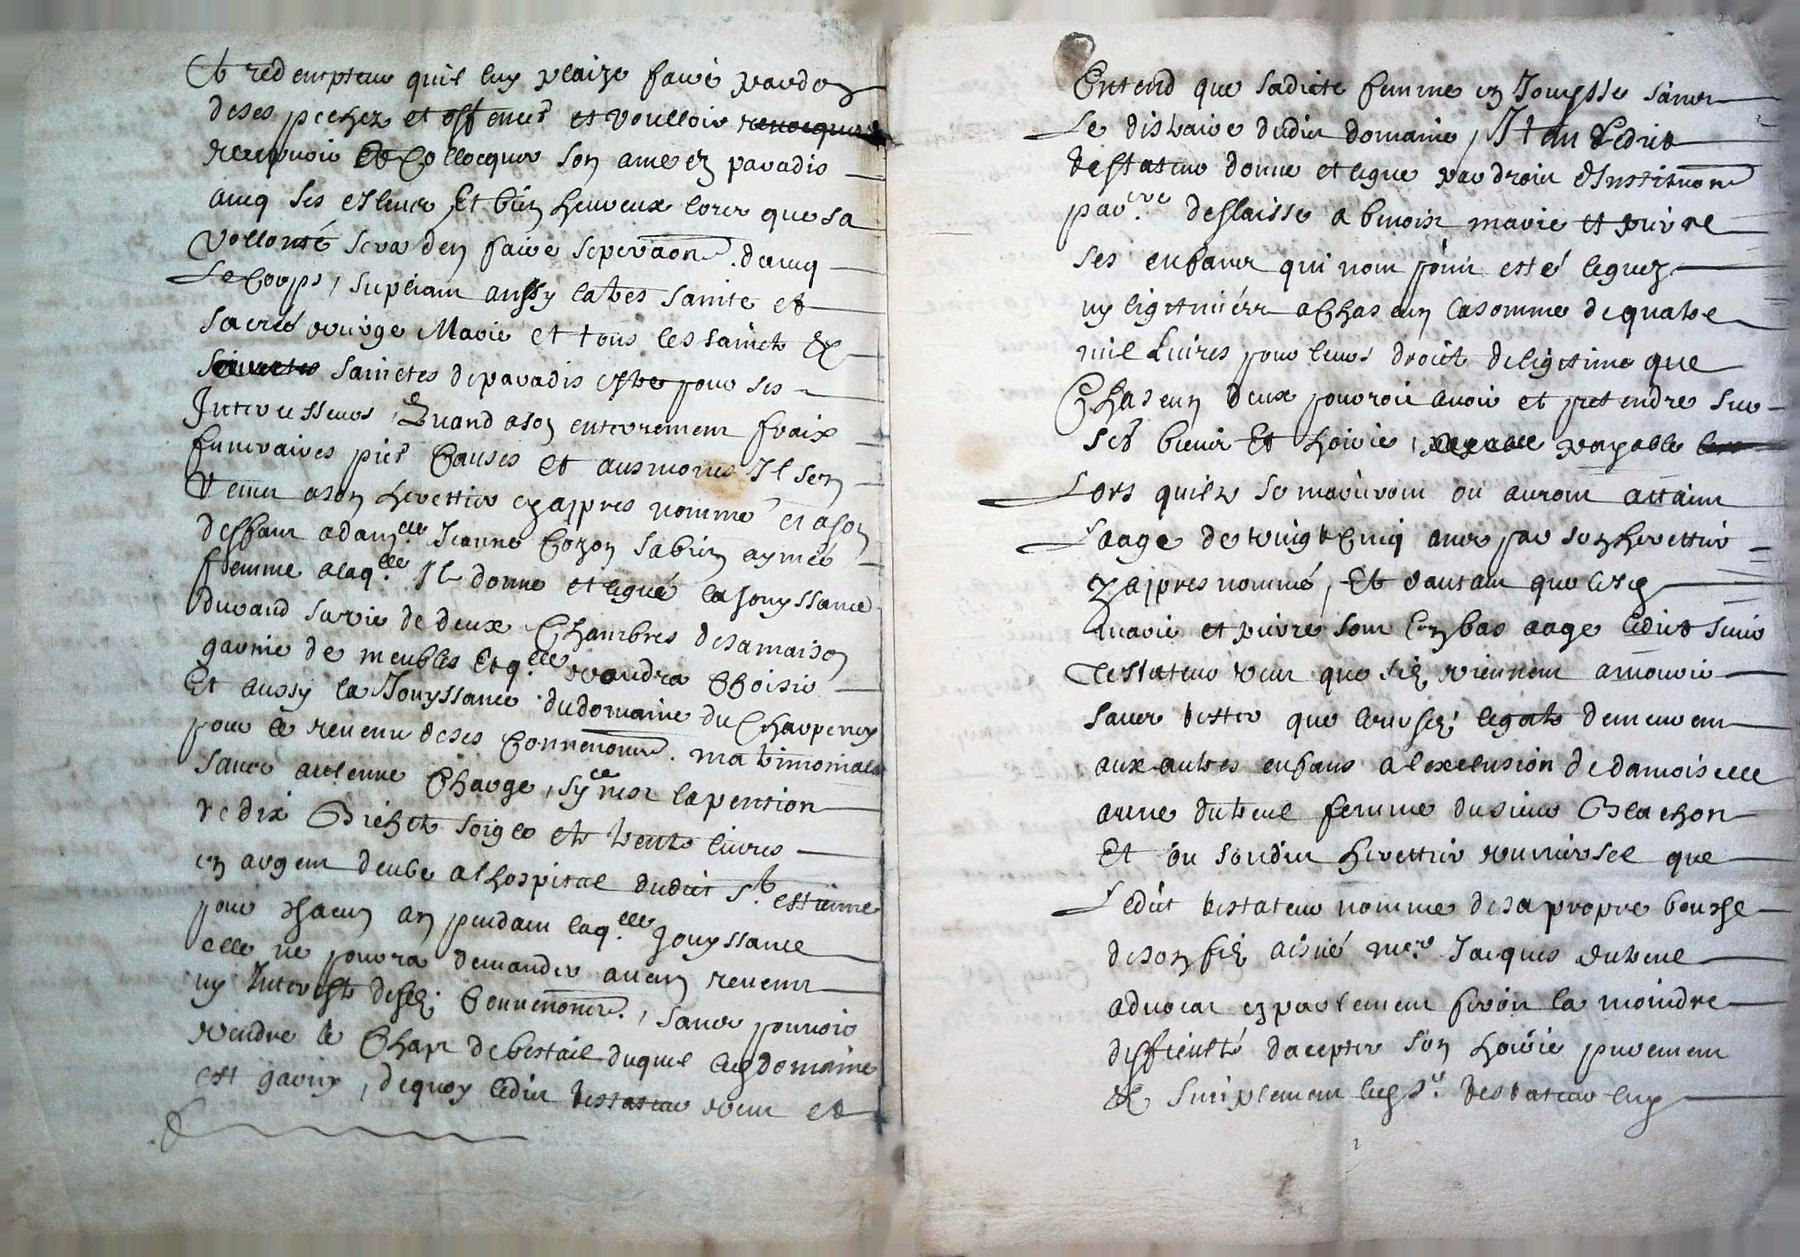 Et redempteur quil luy plaize faire pardon
deses pechez et offences et voulloir
recepvoir Et Collocquer son ame en paradis
avecq ses esleus Et bien heureux lors que sa
vollonté sera den faire sepera[ti]on davecq
Le Corps, supliant aussy la tres sainte et
sacrée vierge Marie et tous les saincts &
sainctes de paradis estre pour ses
Intercesseurs, Quand a son enterrement fraix
funeraires pies Causes et ausmones Il sen
remet a son herettier cy appres nommé et a son
deffaut a dam.lle Jeanne Cozon sa bien aymée
femme a laq.lle Il donne et legue la Jouyssance
durand sa vie de deux Chambres de sa maison
garnie de meubles Et q.lle voudra Choisir
Et aussy la Jouyssance du domaine du Charpenay
pour le revenu de ses Conventions matrimonialles
sans aulcune Charge, sy ce nest la pention
de dix Bichets soigle et trente livres
en argent deube a lhospital dudict St. estienne
pour chacun an pendant laq.lle Jouyssance
elle ne pourra demander aucun revenu
ny Interest desd. Conventions, sans pouvoir
vendre le Chapt de bestail duquel led domaine
est garny, dequoy ledit testateur veut et
Entend que sadicte femme en Jouysse sans
Le distraire dudit domaine, Item Ledict
testateur donne et legue par droit dInstitution
par.re deslaisse a benoist marie et pierre
ses enfans qui nont point esté leguez
ny legitimés a Chascun la somme de quatre
mil Livres pour leurs droits de legitime que
Chascun deux pouroit avoir et pretendre sur
ses biens Et hoirie, payable
Lors quils se mariront ou auront attaint
Laage de vingt Cinq ans par son herettier
cy appres nommé, Et dautant que lesd
marie et pierre sont En bas aage ledict sieur
testateur veut que silz viennent a mourir
sans tester que leursd. legats demeurent
aux autres enfans a lexclusion de damoiselle
anne dutreul femme du sieur Blachon
Et ou sondit herettier universel que
Ledict testateur nomme de sa propre bouche
de son filz aisné me. Jacques dutreul
advocat en parlement feroit la moindre
difficulté dacepter son hoirie purement
& simplement led sr. testateur luy